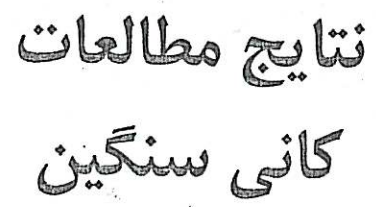 نتایج مطالعات
کانی سنگین